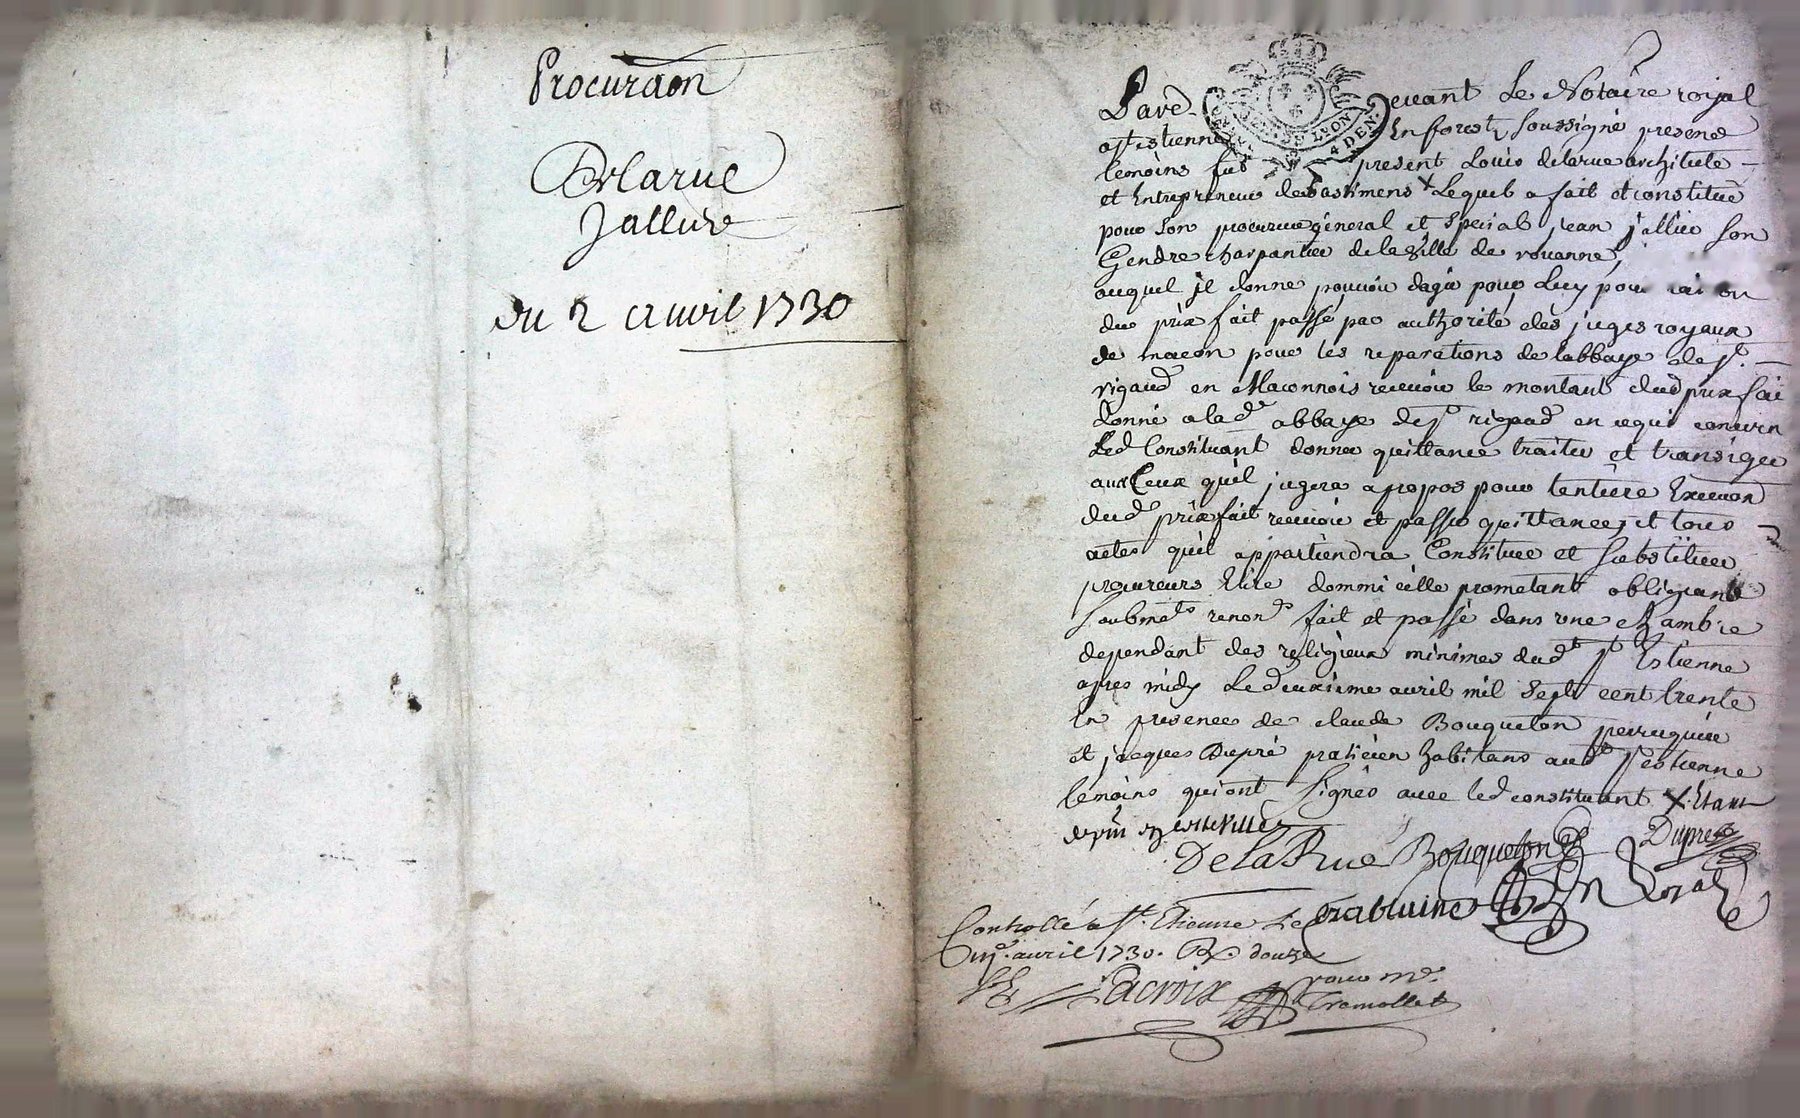 Procuraon
Delarue
Jalliere
du 2 avril 1730
GEN. DE LYON
4 DEN.
Pard evant Le Notaire royal
a st estienne En forest soussigné presens
temoins fut present Louis delarue architecte
et Entrepreneur des bastimens x Lequel a fait et constitué
pour son procureur géneral et special jean jallier son
Gendre charpantier de la ville de rouanne,
auquel il donne pouvoir dagir pour Luy pour raison
du prix fait passé par authorité des juges royaux
de macon pour les reparations de labbaye de st.
rigaud en Maconnois recevoir le montant dud prix fai
donné a lad abbaye de st rigaud en ce qui concern
Led Constituant donner quittance traiter et transiger
aux Ceux quil jugera apropos pour lentiere Execuon
dud prix fait recevoir et passer quittances et tous
actes quil appartiendra Constituer et substituer
procureurs Elire dommicille prometant obligeant
soubmets renon fait et passé dans une chambre
dependant des religieux minimes dud st Estienne
apres midy Le deuxieme avril mil sept cent trente
En presence de claude Bouqueton perruquier
et jacques Dupré praticien habitans aud st estienne
temoins qui ont signés avec led constituant x. Etant
de pnt en cette ville
DelaRue Bouqueton Dupré
Nre Royal
Controllé a st. Etienne Le
avril 1730. Rx douze
s
Lacroix
pour mr.
Tramollet